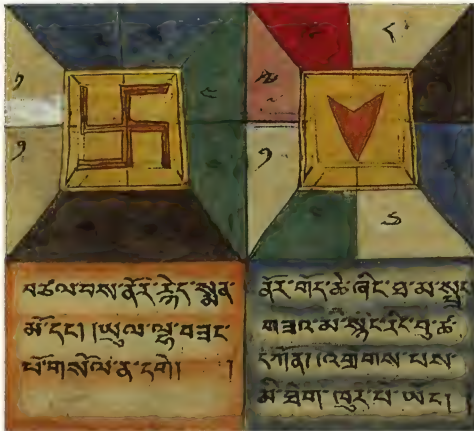 བཙལ་བས་ནོར་རྙེད་སྨན་
མོ་དང། །ཡུལ་ལྷ་བཟང་
པོ་གསོལ་ན་དགེ། །
ནོར་གོད་ཆེ་ཞིང་ཐ་མ་
གཟའ་མི་རིང་བུ་ཚ་
དཀོན། །འགྲགས་པས་
མི་ཐེག་ཁུར་པོ་ཡོང། །